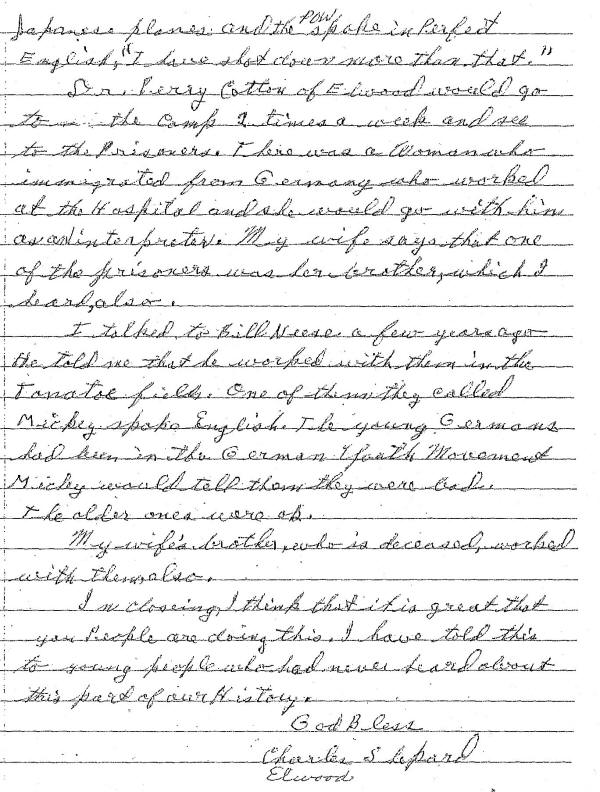 Japanese planes and the POW spoke in Perfect
English, "I have shot down more than that."
Dr. Perry Cotton of Elwood would go
to the Camp 2 times a week and see
to the Prisoners. There was a Woman who
immigrated from Germany who worked
at the Hospital and she would go with him
as an interpreter. My wife says that one
of the prisoners was her brother, which I
heard, also.
I talked to Bill Neese a few years ago
He told me that he worked with them in the
Tomatoe fields. One of them they called
Mickey spoke English. The young Germans
had been in the German Youth Movement
Mickey would tell them they were bad.
The older ones were ok.
My wife's brother, who is deceased, worked
with them, also.
In closeing, I think that it is great that
you People are doing this. I have told this
to young people who had never heard about
this part of our History.
God Bless
Charles Shepard
Elwood